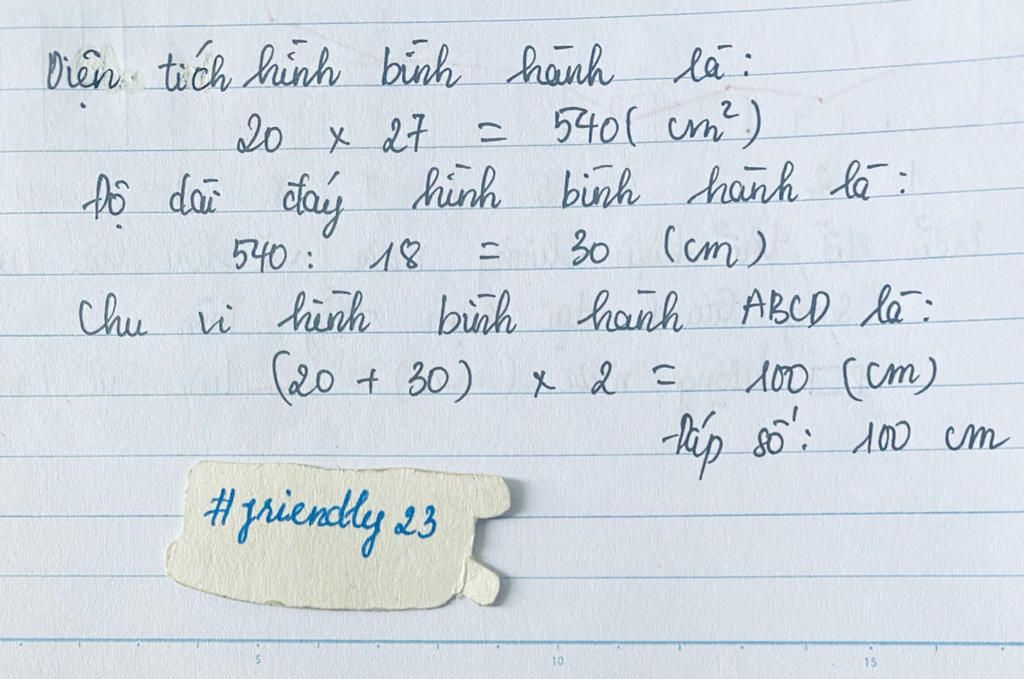 Diện tích hình bình hành là:
20 x 27 = 540 ( cm²)
Độ dài đáy hình bình hành là:
540 : 18 = 30 (cm)
Chu vi hình bình hành ABCD là:
(20 + 30) x 2 = 100 (cm)
Đáp số: 100 cm
#friendly 23
5 10 15